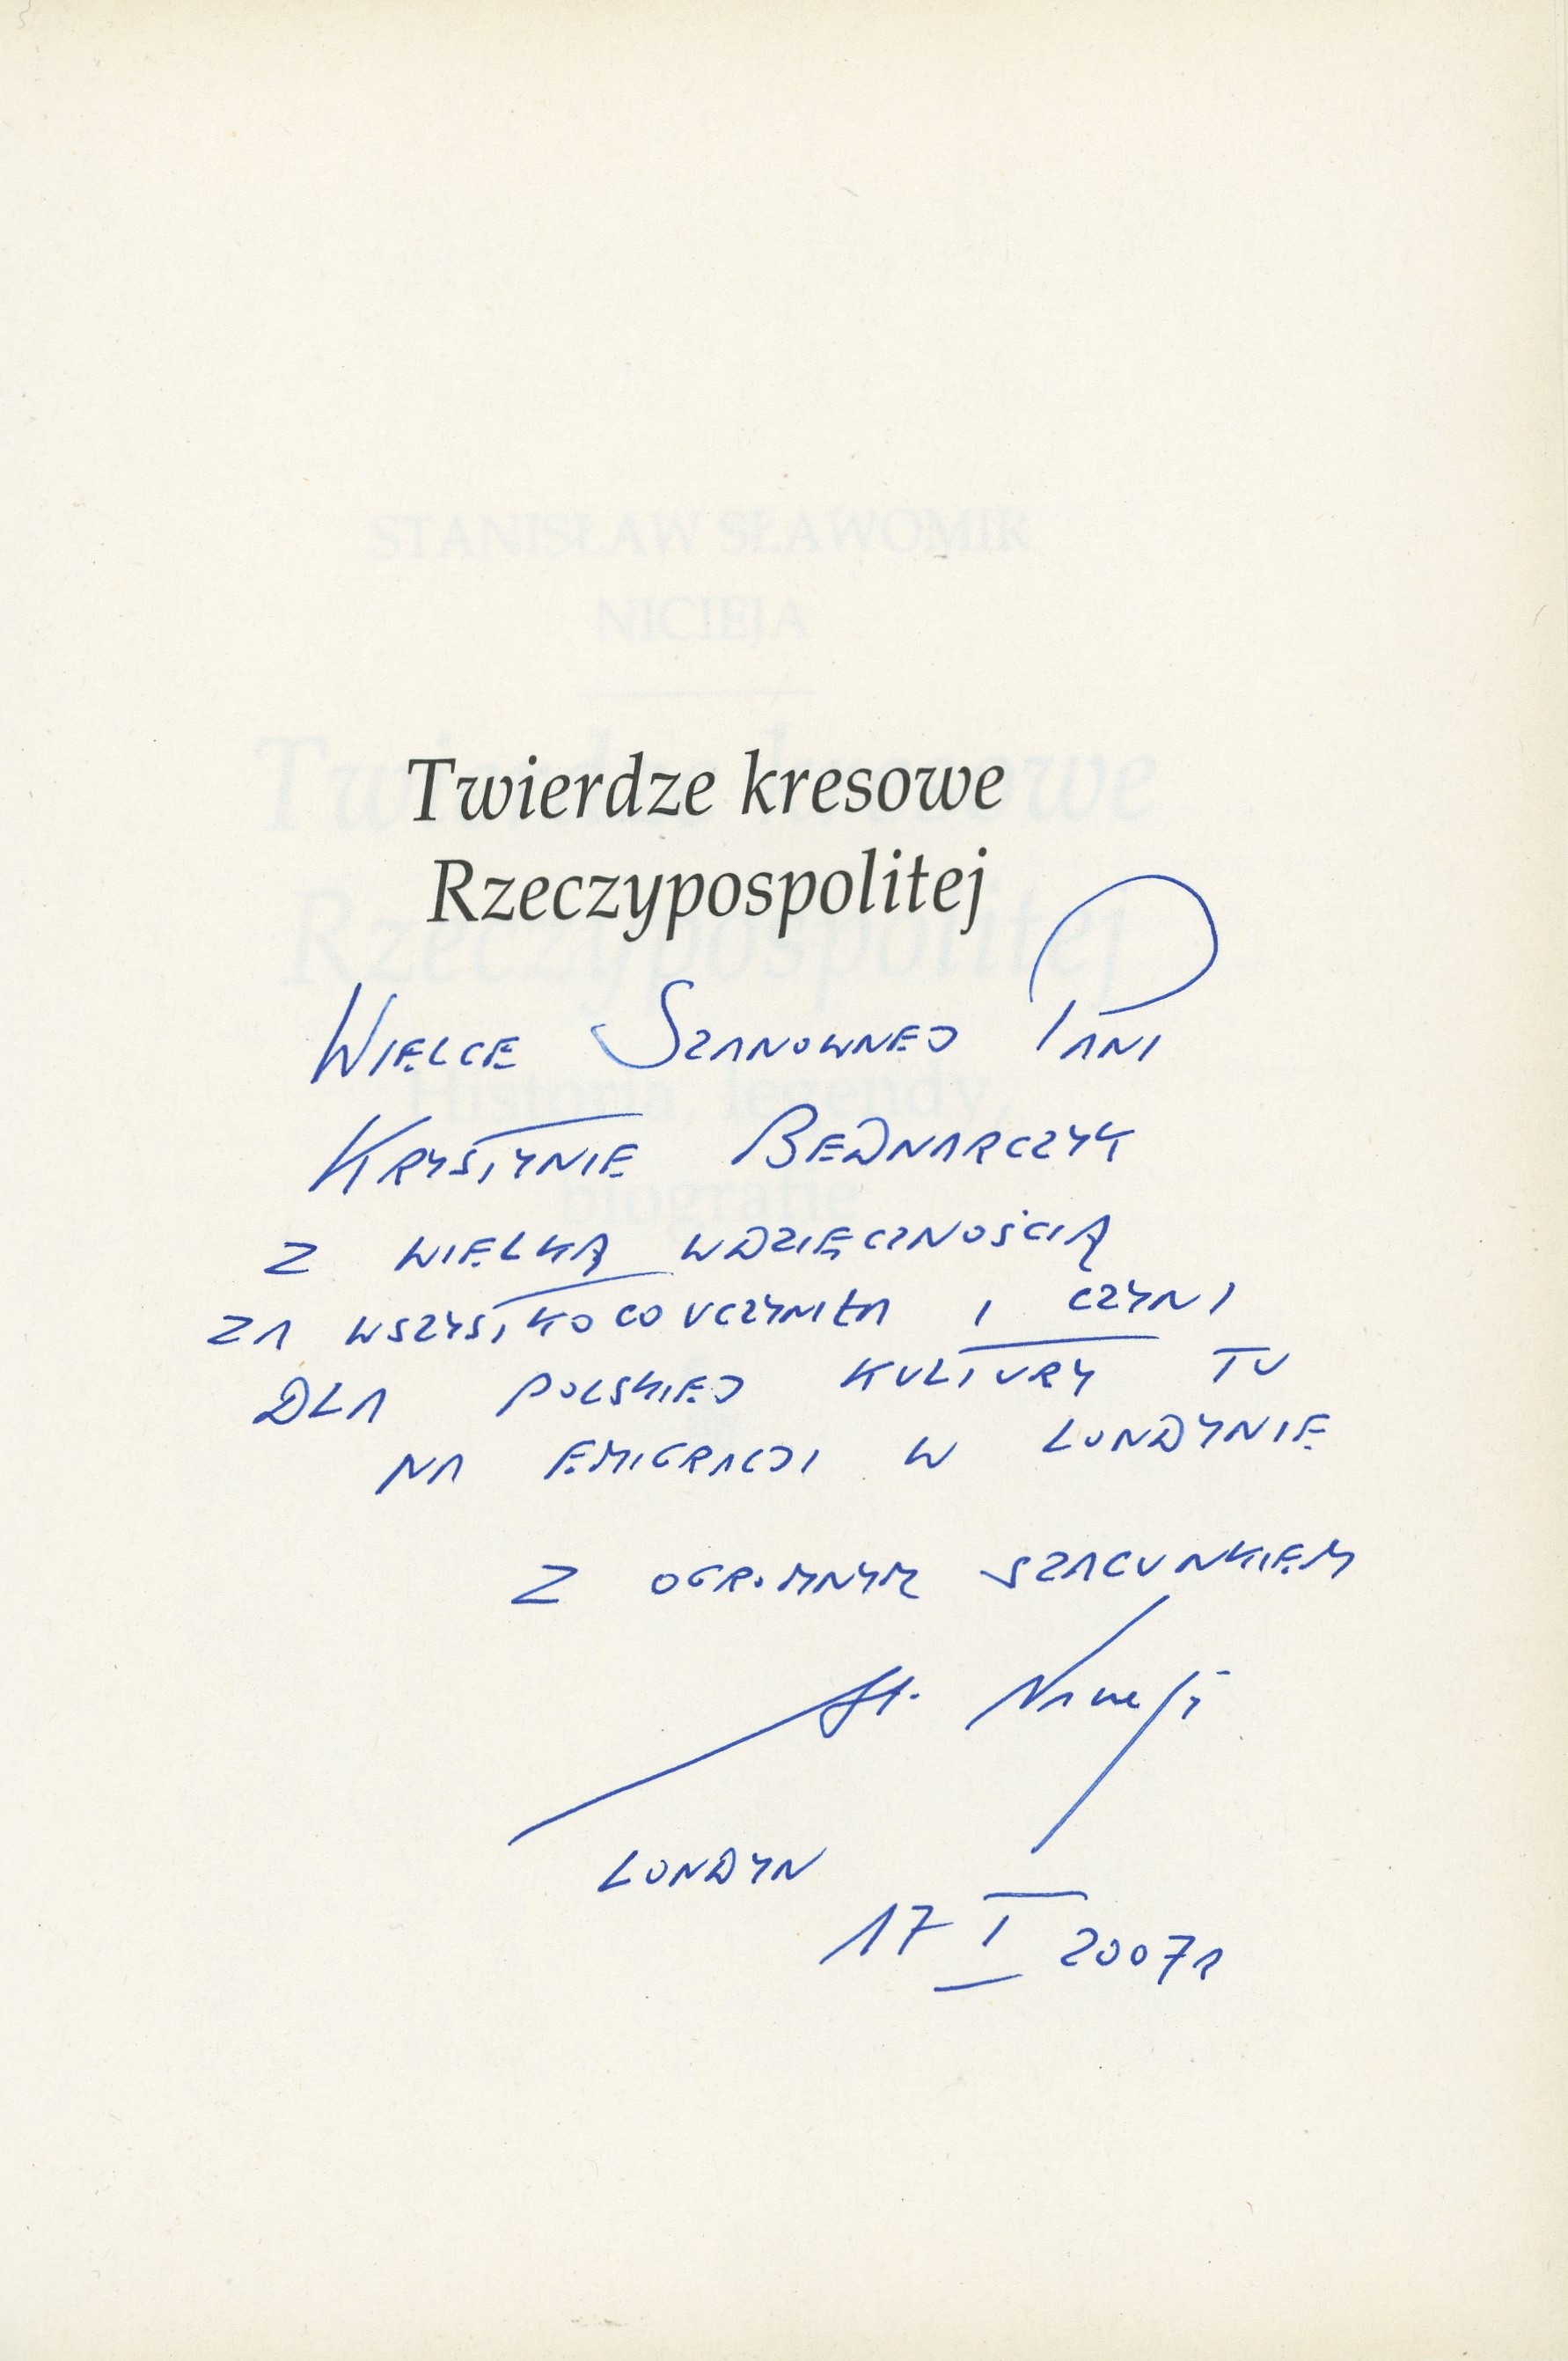 STANISŁAW SŁAWOMIR
NICIEJA
Twierdze kresowe
Rzeczypospolitej
Twierdze kresowe
Rzeczypospolitej
Historia, legendy,
biografie
WIELCE SZANOWNEJ PANI
KRYSTYNIE BEDNARCZYK
Z WIELKĄ WDZIĘCZNOŚCIĄ
ZA WSZYSTKO CO UCZYNIŁA I CZYNI
DLA POLSKIEJ KULTURY TU
NA EMIGRACJI W LONDYNIE
Z OGROMNYM SZACUNKIEM
St. Nicieja
LONDYN
17 I 2007 r